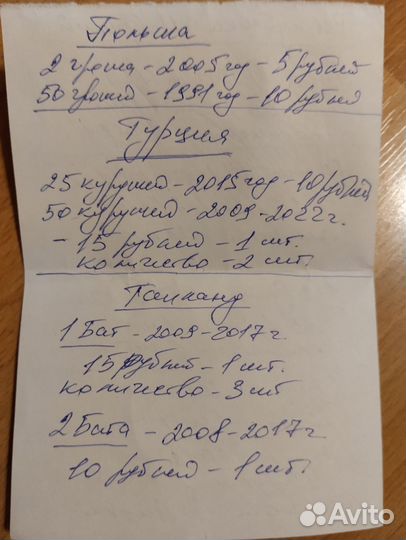 Польша
2 гроша - 2005 год - 5 рублей
50 грошей - 1991 год - 10 рублей
Турция
25 курушей - 2015 год - 10 рублей
50 курушей - 2009-2022 г.
- 15 рублей - 1 шт.
количество - 2 шт.
Таиланд
1 Бат - 2009-2017 г.
15 рублей - 1 шт.
количество - 3 шт
2 Бата - 2008-2017 г.
10 рублей - 1 шт.
Avito